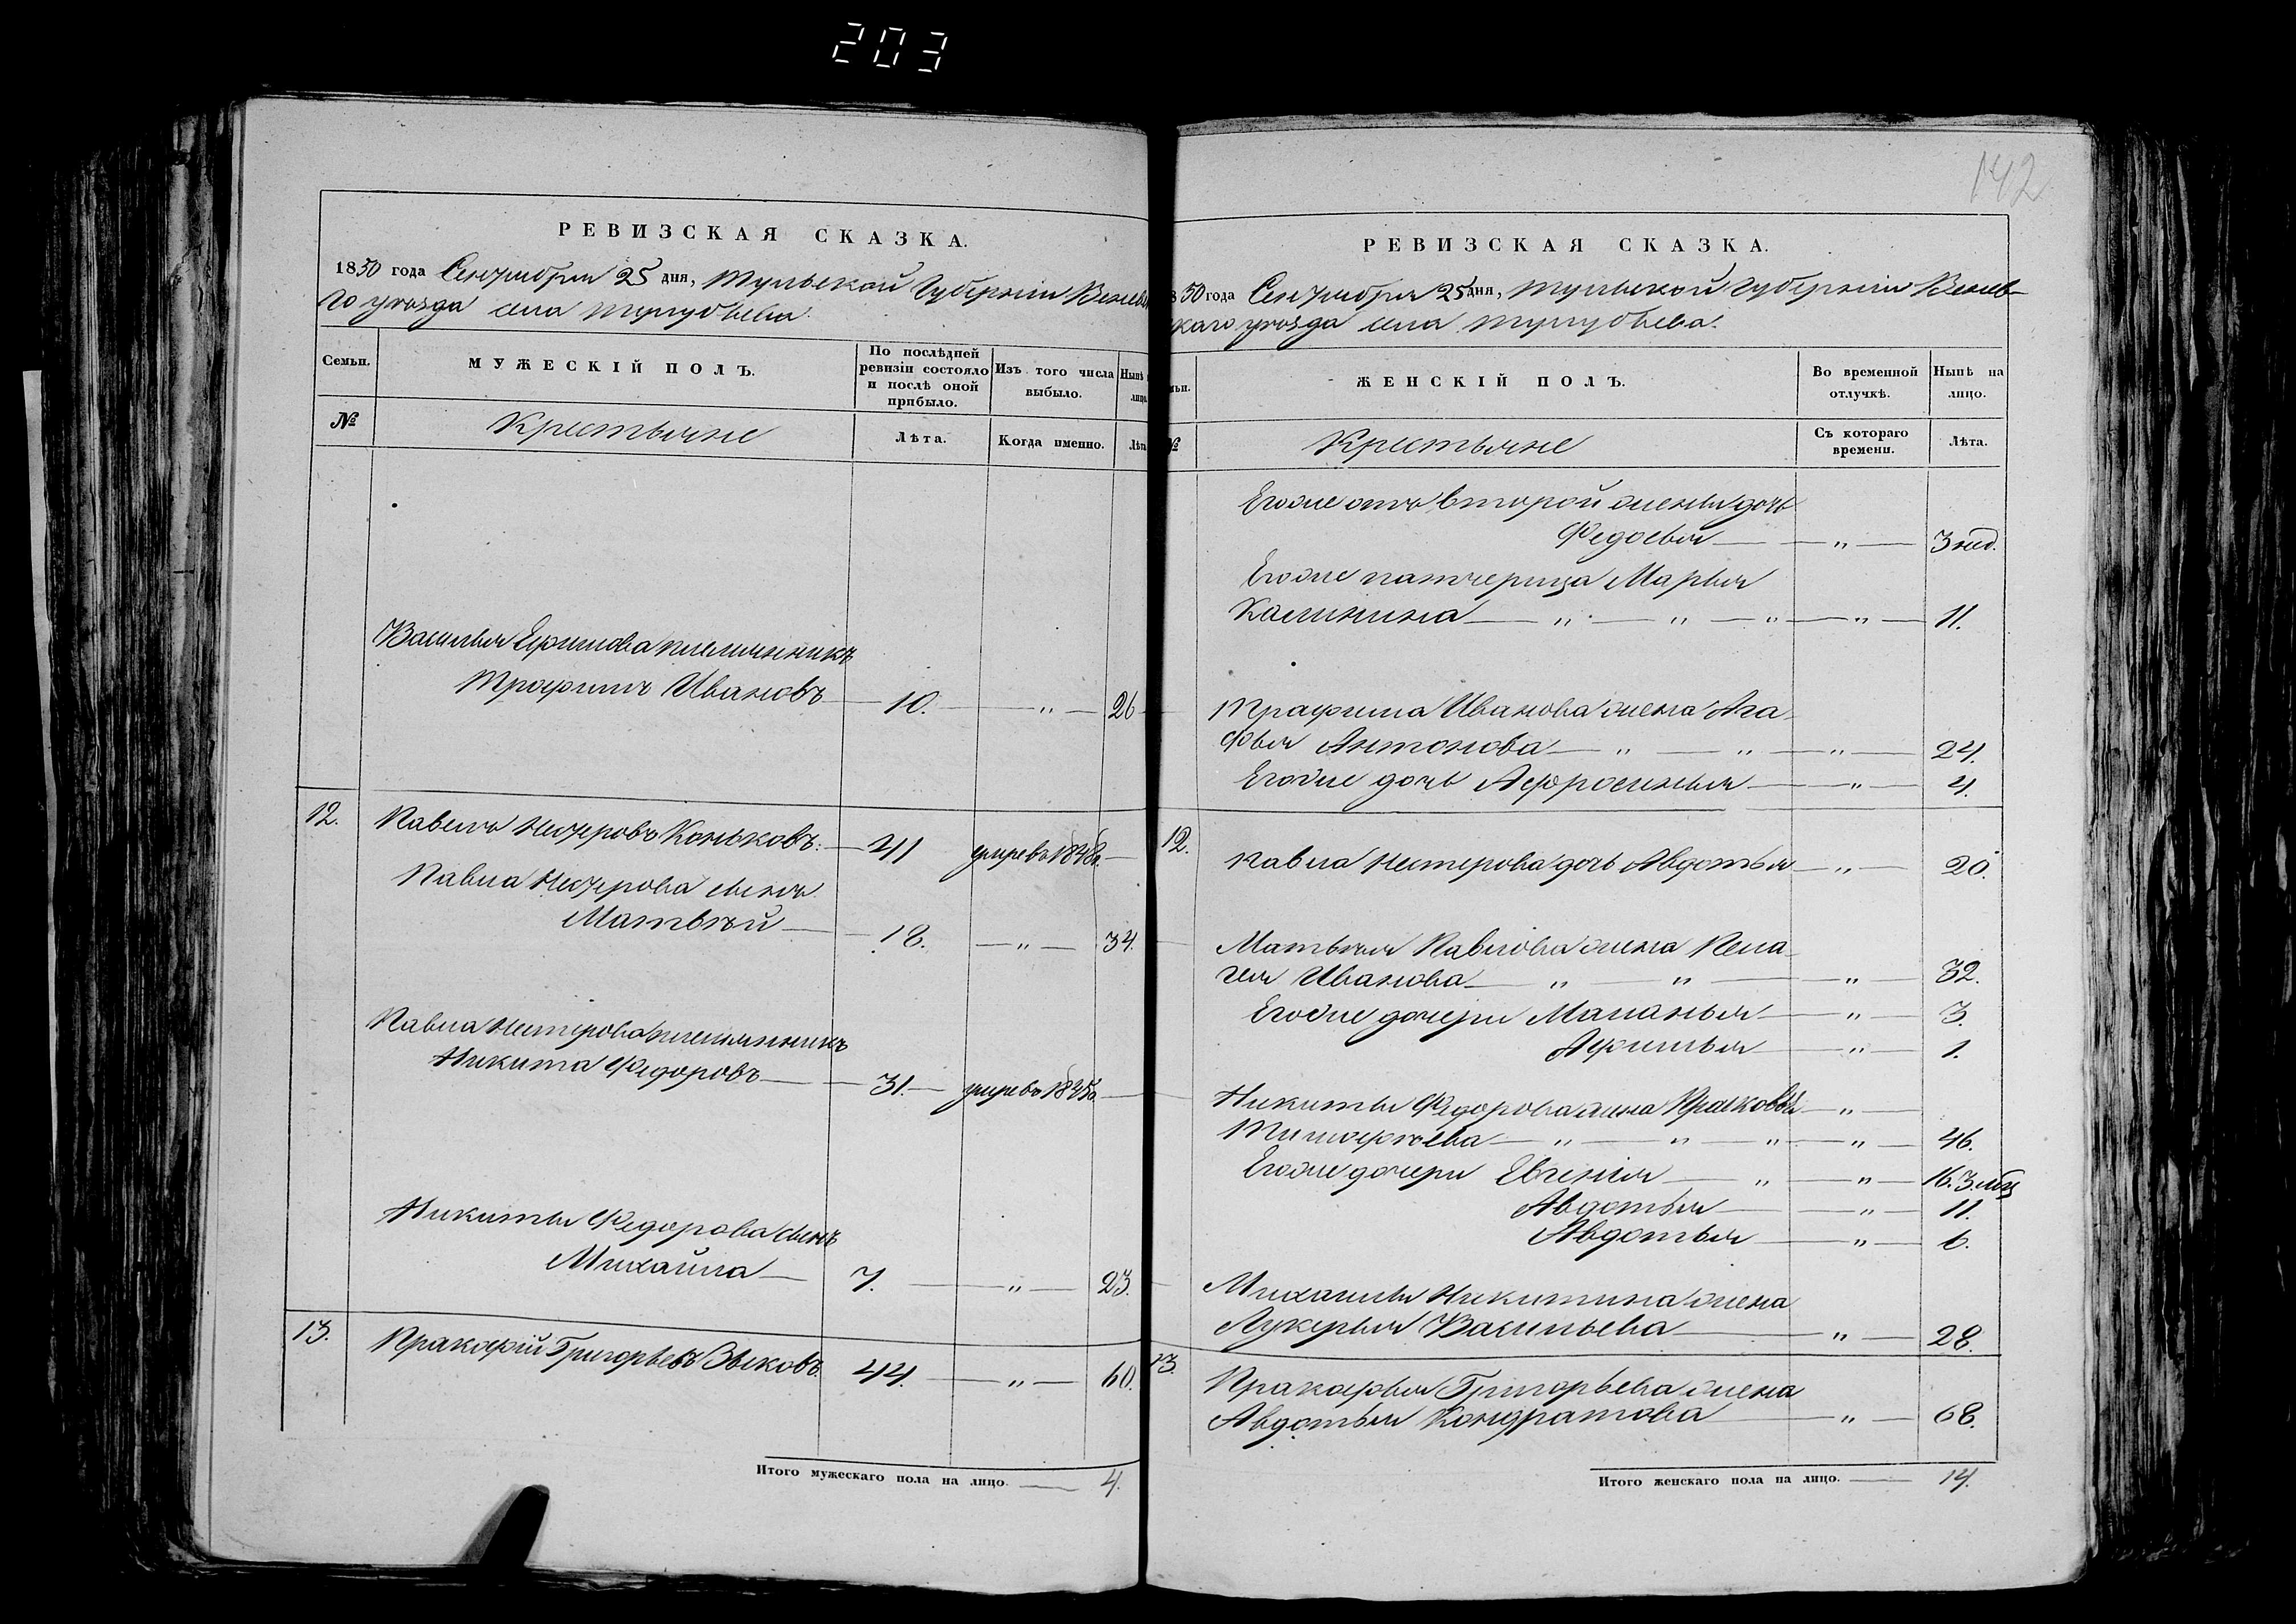 203
РЕВИЗСКАЯ СКАЗКА.
1850 года Сентября 25 дня, Тульской Губернии Венев
го уѣзда села
Семьи.
МУЖЕСКІЙ ПОЛЪ.
По послѣдней ревизіи состояло и послѣ оной прибыло.
Изъ того числа выбыло.
Нынѣ лицо.
№
Крестьяне
Лѣта.
Когда именно.
Лѣта
Василья Ефимова племянникъ
Трафимъ Ивановъ — 10. — " — 26
12. Павелъ Нестеровъ Коньковъ. — 41 умре въ 1848 г. —
Павла Нестерова сынъ
Матвѣй — 18. — " — 34.
Павла Нестерова племянникъ
Никита Федоровъ — 31. — умре въ
Никиты Федорова сынъ
Михайла — 7. — " — 23.
13. Пракофій Григорьевъ Зыковъ. 44. — " — 60.
Итого мужескаго пола на лицо. — 4.
142
РЕВИЗСКАЯ СКАЗКА.
850 года Сентября 25 дня, Тульской Губерніи Венев-
скаго уѣзда села
мьи.
ЖЕНСКІЙ ПОЛЪ.
Во временной отлучкѣ.
Нынѣ на лицо.
№
Крестьяне
Съ котораго времени.
Лѣта.
Егоже отъ второй жены дочь
Федосья — " — 3 нед.
Егоже патчерица Марья
Калинина — " — " — " — " — 11.
Трафима Иванова жена Ага-
фья Антонова — " — " — " — 24.
Егоже дочь Афросинья — " — 4.
12. Павла Нестерова дочь Авдотья — " — 20.
Матвѣя Павлова жена Пела-
гея Иванова — " — " — " — 32.
Егоже дочери Маланья — " — 3.
Афимья — " — 1.
Никиты Федорова жена Прасковья — " —
Тимофѣева — " — " — " — " — 46.
Егоже дочери Евгенія — " — " — 16. 3 мѣс
Авдотья — " — 11.
Авдотья — " — 6.
Михаилы Никитина жена
Лукерья Васильева — " — 28.
13. Пракофья Григорьева жена
Авдотья Кондратова — " — 68.
Итого женскаго пола на лицо. — 14.